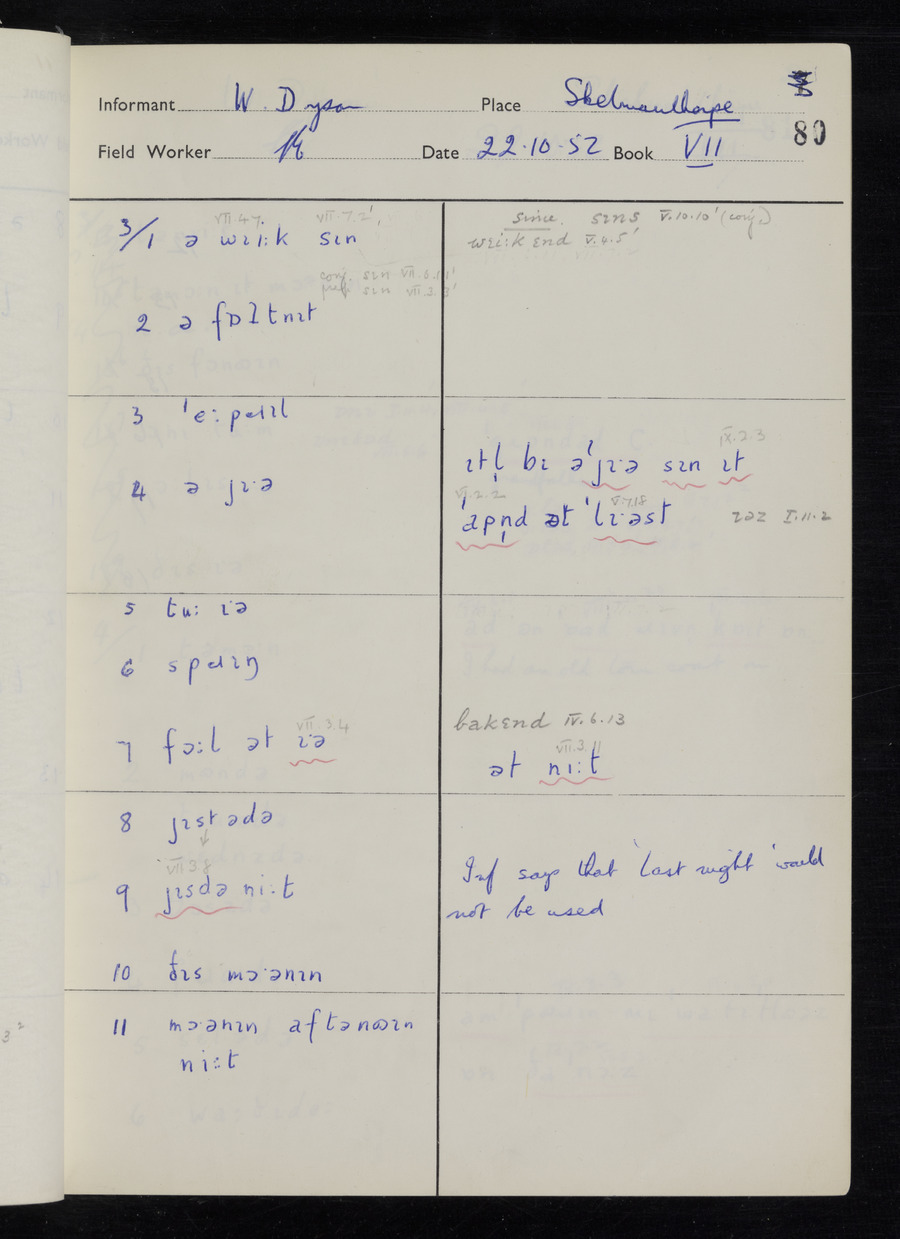 Informant W. Dyson Place Skelmanthorpe
80
Field Worker Date 22.10.52 Book VII
VII.4.7. VII.7.2'
3/1 ə wɛi:k sɪn
since. sɪns V.10.10' (conj)
wɛi:k ɛnd V.4.5'
conj. sɪn VII.6.11'
pref. sɪn VII.3.3'
2 ə fɒɫtnɪt
3 ˈɛ:pəɪɪl
4 ə jɪ·ə
IX.2.3
ɪtl̩ bɪ əˈjɪ·ə sɪn ɪt
VI.2.2 V.7.18
ˈapn̩d ət ˈlɪ·əst ɪəz I.11.2
5 tu: ɪ·ə
6 spəɪɪŋ
7 fɔ:l ət ɪ·ə
VII.3.4
bakɛnd IV.6.13
VII.3.11
ət ni:t
8 jɪstədə
VII.3.8
9 jɪsdə ni:t
Inf says that 'last night' would
not be used
10 ðɪs mɔ·ənɪn
11 mɔ·ənɪn aftənʊɪn
ni:t